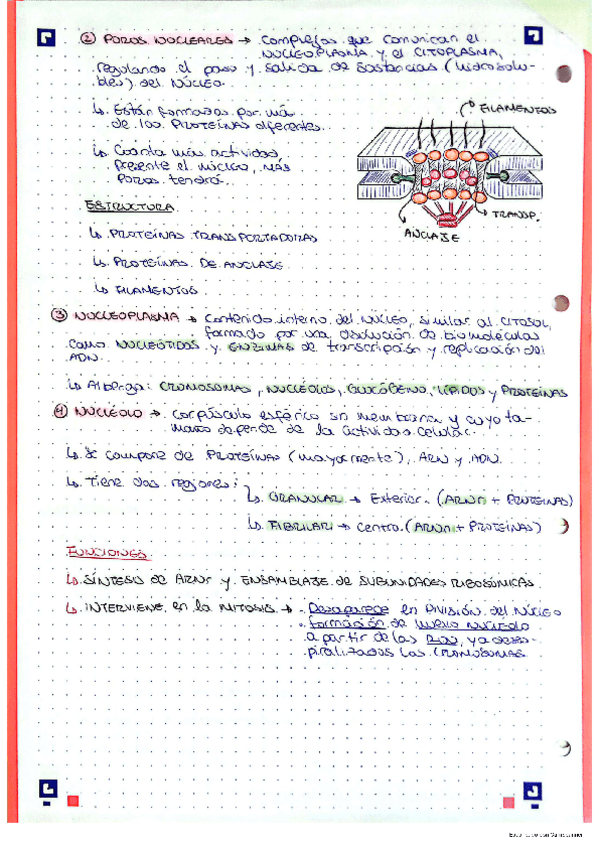 ② POROS NUCLEARES → Complejos que comunican el
NÚCLEOPLASMA y el CITOPLASMA,
regulando el paso y salida de sustancias (hidrosolu-
bles) del NÚCLEO.
↳ Están formados por más
de 100 PROTEÍNAS diferentes.
↳ Cuanta más actividad
presente el núcleo, MÁS
POROS tendrá.
FILAMENTOS
TRANSP.
ANCLAJE
ESTRUCTURA
↳ PROTEÍNAS TRANSPORTADORAS
↳ PROTEÍNAS DE ANCLAJE
↳ FILAMENTOS
③ NUCLEOPLASMA → Contenido interno del NÚCLEO, similar al CITOSOL,
formado por una disolución de biomoléculas
como NUCLEÓTIDOS y ENZIMAS de transcripción y replicación del
ADN.
↳ Alberga: CROMOSOMAS, NUCLÉOLOS, GLUCÓGENO, LÍPIDOS y PROTEÍNAS
④ NUCLÉOLO → Corpúsculo esférico sin membrana y cuyo ta-
maño depende de la actividad celular.
↳ Se compone de PROTEÍNAS (mayormente), ARN y ADN.
↳ Tiene dos regiones:
↳ GRANULAR → Exterior. (ARNr + PROTEÍNAS)
↳ FIBRILAR → Centro. (ARNn + PROTEÍNAS)
FUNCIONES
↳ SÍNTESIS de ARNr y ENSAMBLAJE de SUBUNIDADES RIBOSÓMICAS
↳ INTERVIENE en la MITOSIS → • Desaparece en DIVISIÓN del NÚCLEO
• Formación de NUEVO NUCLÉOLO
a partir de las , ya deses-
piralizados los CROMOSOMAS